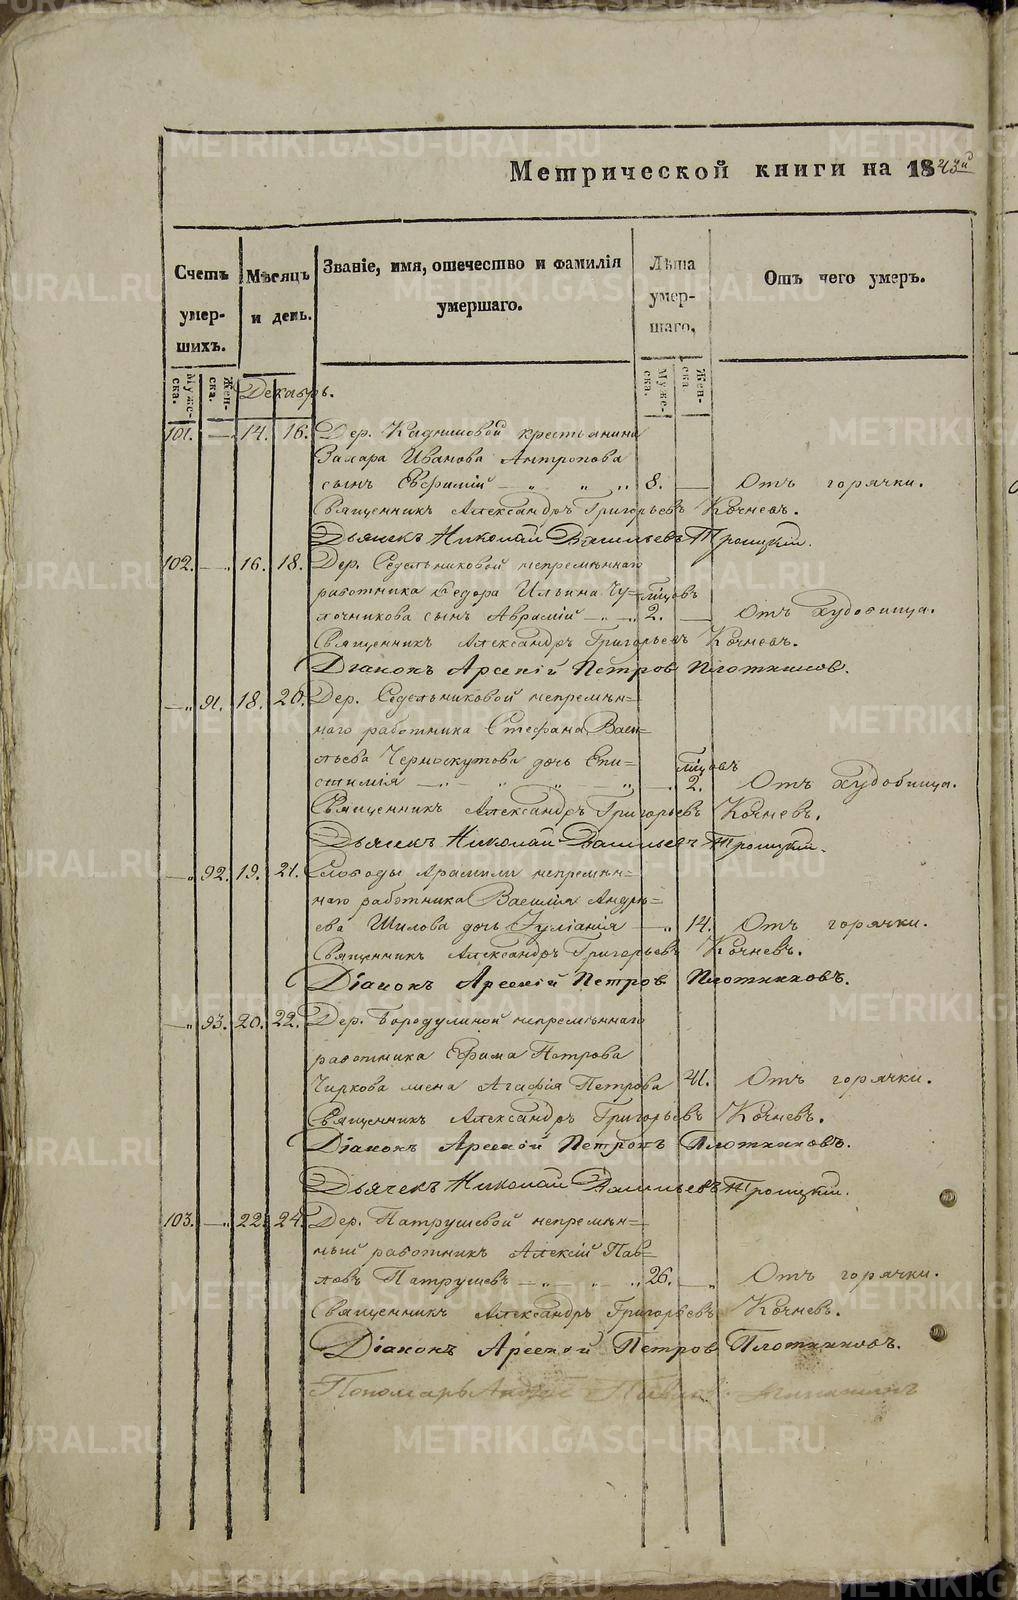 Метрической книги на 1843й
Счетъ умершихъ.
Мужеска.
Женска.
Мѣсяцъ и день.
Званіе, имя, отечество и фамилія умершаго.
Лѣта умершаго,
Мужеска.
Женска.
Отъ чего умеръ.
Декабрь.
101. — 14. 16. Дер. Кадниковой крестьянина
Захара Иванова Антропова
сынъ Евфимій — „ „ „ 8. — Отъ горячки.
Священникъ Александръ Григорьевъ Кочневъ.
Дьячекъ Николай Васильевъ Троицкій.
102. — 16. 18. Дер. Седельниковой непремѣннаго
работника Ѳедора Ильина Чу= мѣсцовъ
лочникова сынъ Аврамій — „ — 2. — Отъ худобища.
Священникъ Александръ Григорьевъ Кочневъ.
Діаконъ Арсеній Петровъ Плотниковъ.
—„ 91. 18. 20. Дер. Седельниковой непремѣн=
наго работника Стефана Васи=
льева Черноскутова дочь Епи= мѣсцовъ
стимія — „ — „ — 2. Отъ худобища.
Священникъ Александръ Григорьевъ Кочневъ.
Дьячекъ Николай Васильевъ Троицкій.
—„ 92. 19. 21. Слободы Арамили непремѣн=
наго работника Василія Андре=
ева Шилова дочь Іуліанія — „ 14. Отъ горячки.
Священникъ Александръ Григорьевъ Кочневъ.
Діаконъ Арсеній Петровъ Плотниковъ.
—„ 93. 20. 22. Дер. Бородулиной непремѣннаго
работника Ефима Петрова
Чиркова жена Агафія Петрова 41. Отъ горячки.
Священникъ Александръ Григорьевъ Кочневъ.
Діаконъ Арсеній Петровъ Плотниковъ.
Дьячекъ Николай Васильевъ Троицкій.
103. — „ 22. 24. Дер. Патрушевой непремѣн=
ный работникъ Алексій Пав=
ловъ Патрушевъ — „ — „ „ 26. — „ Отъ горячки.
Священникъ Александръ Григорьевъ Кочневъ.
Діаконъ Арсеній Петровъ Плотниковъ.
Пономарь
METRIKI.GASO-URAL.RU